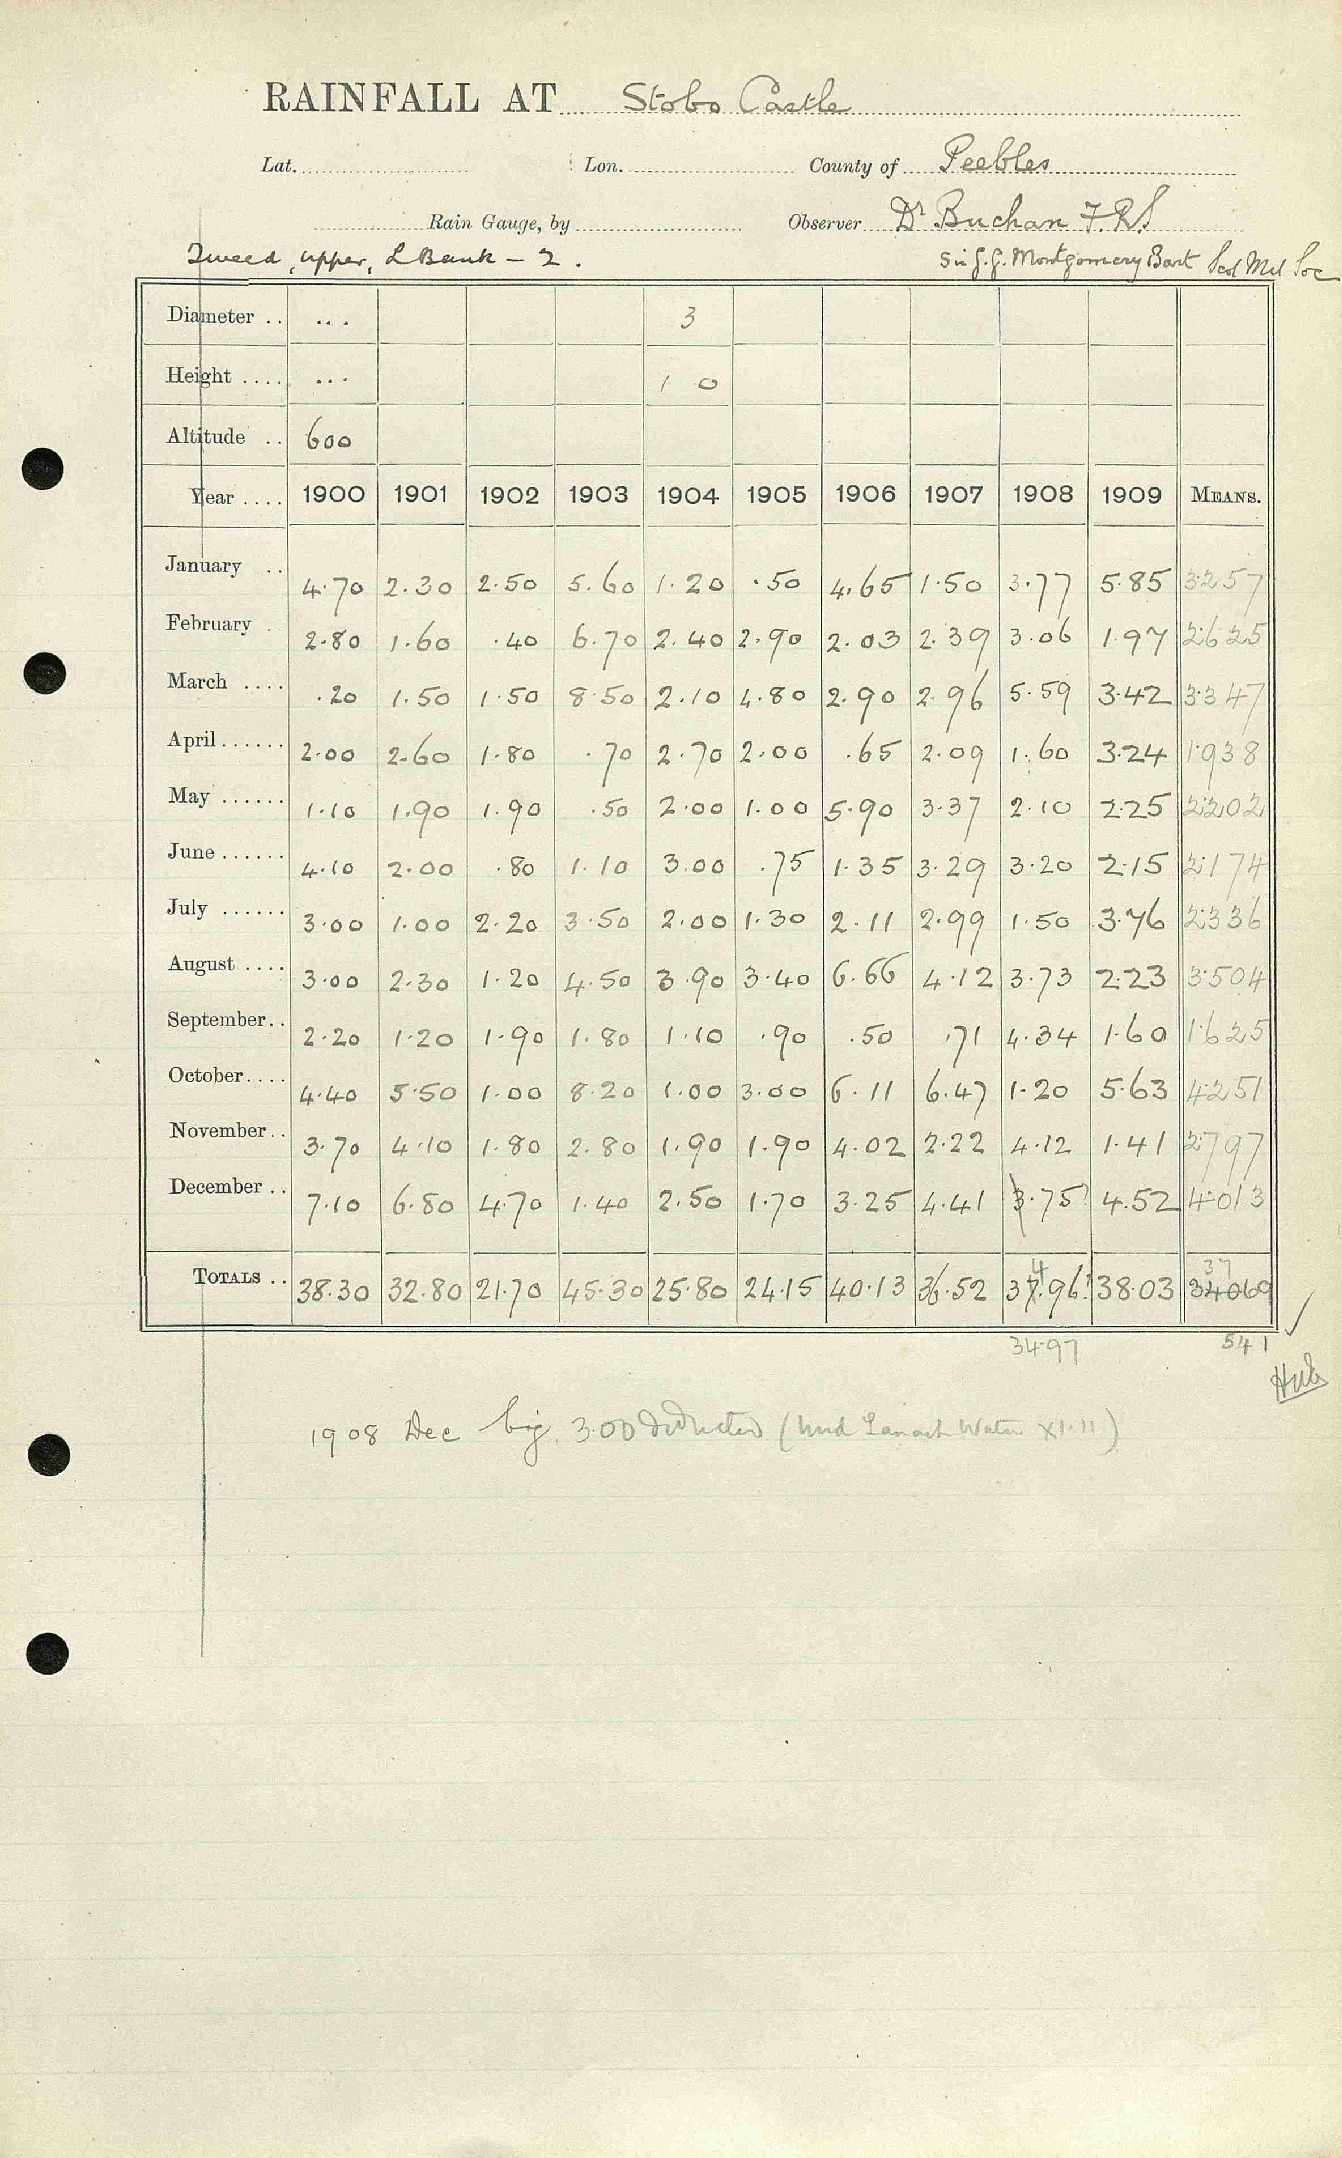 RAINFALL AT Stobo Castle
Lat. Lon. County of Peebles
Rain Gauge, by Observer Dr Buchan F.R.S
Tweed, upper, L Bank - 2. Sir G.G. Montgomery Bart Scot Met Soc
Diameter .. ... 3
Height .... ... 1 0
Altitude .. 600
Year .... 1900 1901 1902 1903 1904 1905 1906 1907 1908 1909 MEANS.
January .. 4.70 2.30 2.50 5.60 1.20 .50 4.65 1.50 3.77 5.85 3.257
February . 2.80 1.60 .40 6.70 2.40 2.90 2.03 2.39 3.06 1.97 2.625
March .... .20 1.50 1.50 8.50 2.10 4.80 2.90 2.96 5.59 3.42 3.347
April ...... 2.00 2.60 1.80 .70 2.70 2.00 .65 2.09 1.60 3.24 1.938
May ...... 1.10 1.90 1.90 .50 2.00 1.00 5.90 3.37 2.10 2.25 2.202
June ...... 4.10 2.00 .80 1.10 3.00 .75 1.35 3.29 3.20 2.15 2.174
July ...... 3.00 1.00 2.20 3.50 2.00 1.30 2.11 2.99 1.50 3.76 2.336
August .... 3.00 2.30 1.20 4.50 3.90 3.40 6.66 4.12 3.73 2.23 3.504
September.. 2.20 1.20 1.90 1.80 1.10 .90 .50 .71 4.34 1.60 1.625
October.... 4.40 5.50 1.00 8.20 1.00 3.00 6.11 6.47 1.20 5.63 4.251
November.. 3.70 4.10 1.80 2.80 1.90 1.90 4.02 2.22 4.12 1.41 2.797
December .. 7.10 6.80 4.70 1.40 2.50 1.70 3.25 4.41 3.75? 4.52 4.013
4 37
TOTALS .. 38.30 32.80 21.70 45.30 25.80 24.15 40.13 36.52 37.96? 38.03 34069
34.97 541
1908 Dec big 3.00 deducted (Water XI.11)